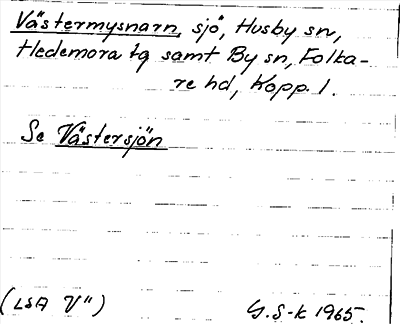 Västermysnarn, sjö, Husby sn,
Hedemora tg samt By sn, Folka-
re hd, Kopp. l.
Se Västersjön
(LSA V")
G. S-k 1965.